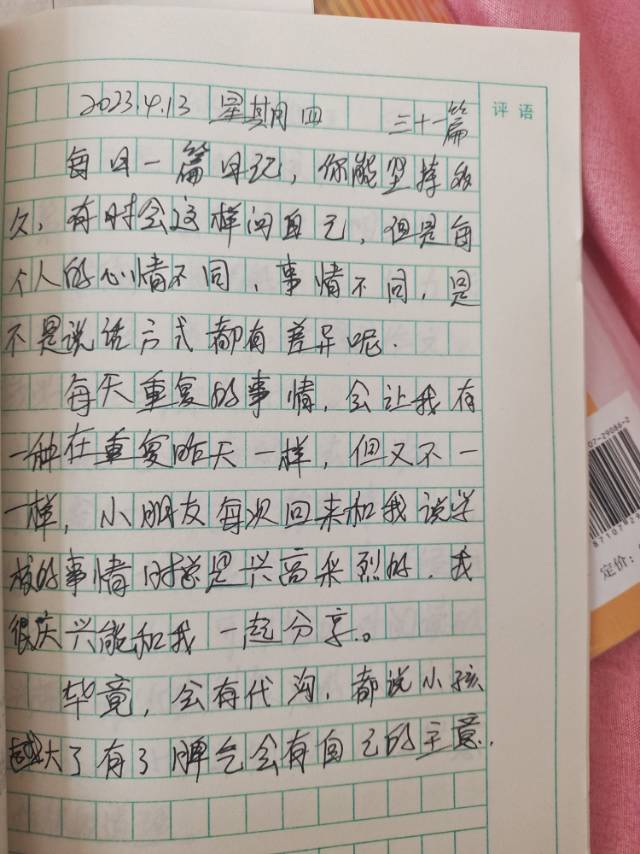 2023.4.13 星期四 三十一篇
评语
每日一篇日记，你能坚持多
久，有时会这样问自己，但是每
个人的心情不同，事情不同，是
不是说话方式都有差异呢．
每天重复的事情，会让我有
一种在重复昨天一样，但又不一
一样，小朋友每次回来和我说学
校的事情时总是兴高采烈的．我
很庆兴能和我一起分享。
毕竟，会有代沟，都说小孩
大了有了脾气会有自己的主意．
07-29086-2
定价：